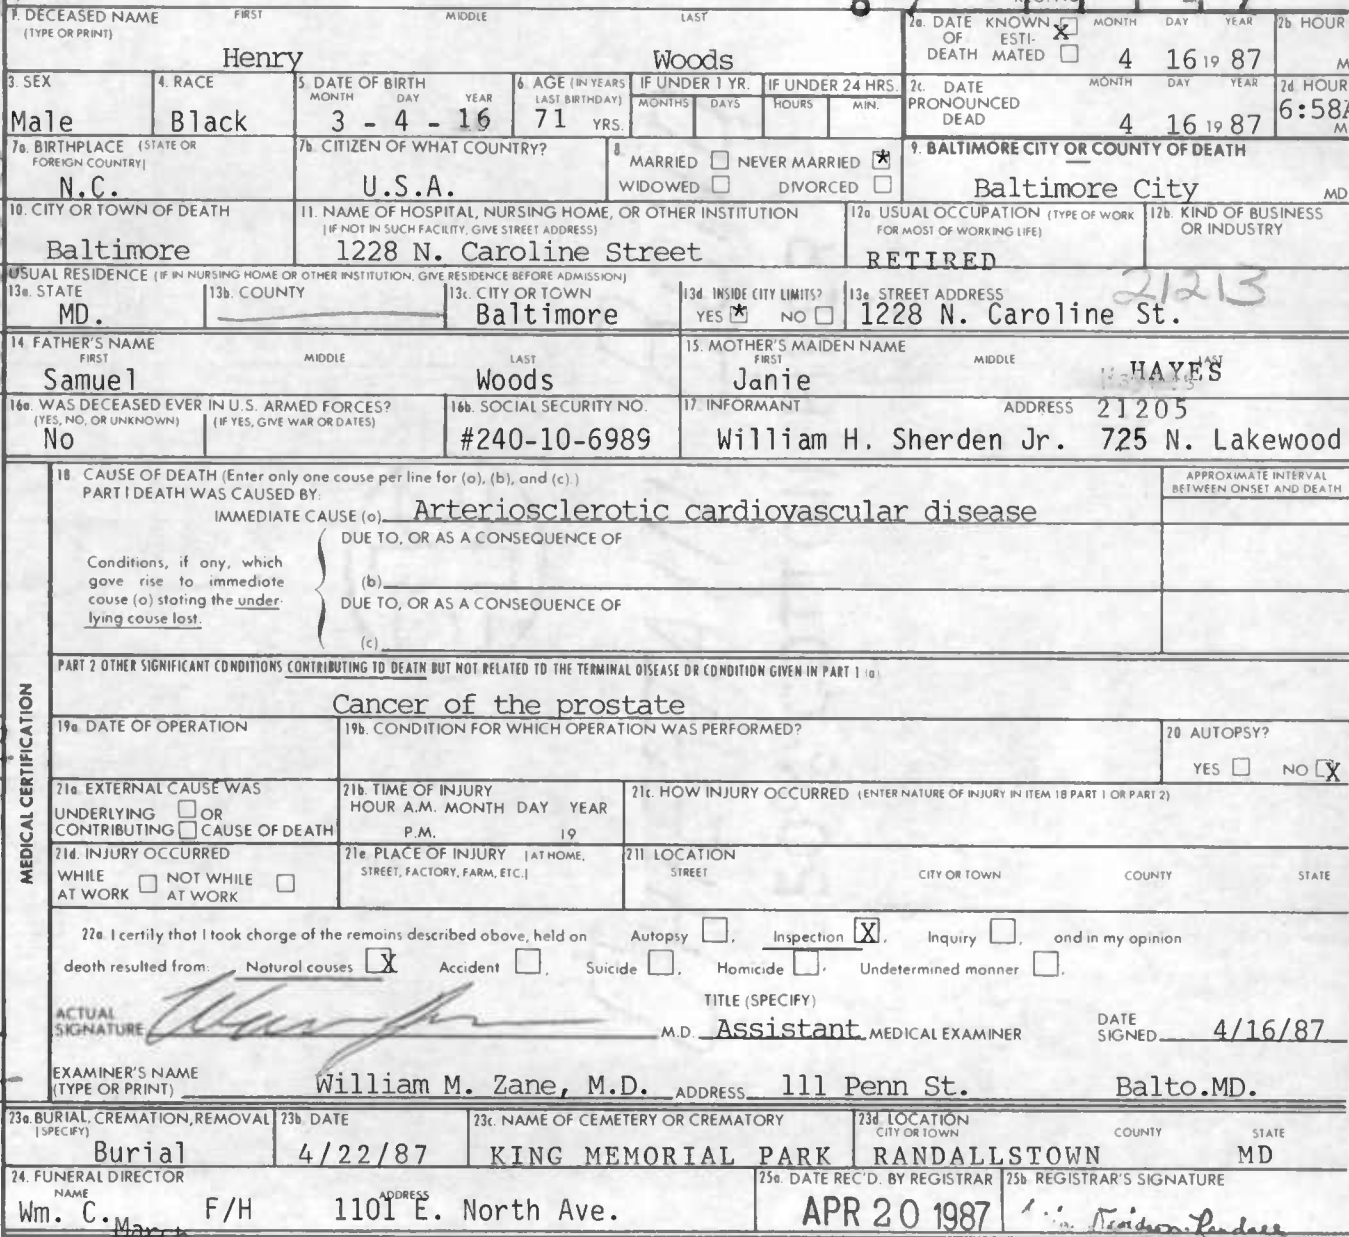 1. DECEASED NAME FIRST MIDDLE LAST
(TYPE OR PRINT)
Henry Woods
2a. DATE KNOWN X MONTH DAY YEAR
OF ESTI-
DEATH MATED 4 16 19 87
2b HOUR
M
3. SEX
Male
4. RACE
Black
5 DATE OF BIRTH
MONTH DAY YEAR
3 - 4 - 16
6. AGE (IN YEARS
LAST BIRTHDAY)
71 YRS.
IF UNDER 1 YR.
MONTHS DAYS
IF UNDER 24 HRS.
HOURS MIN.
2c. DATE MONTH DAY YEAR
PRONOUNCED
DEAD 4 16 19 87
2d HOUR
6:58A
M
7a. BIRTHPLACE (STATE OR
FOREIGN COUNTRY)
N.C.
7b. CITIZEN OF WHAT COUNTRY?
U.S.A.
8
MARRIED NEVER MARRIED *
WIDOWED DIVORCED
9. BALTIMORE CITY OR COUNTY OF DEATH
Baltimore City MD
10. CITY OR TOWN OF DEATH
Baltimore
11. NAME OF HOSPITAL, NURSING HOME, OR OTHER INSTITUTION
(IF NOT IN SUCH FACILITY, GIVE STREET ADDRESS)
1228 N. Caroline Street
12a. USUAL OCCUPATION (TYPE OF WORK
FOR MOST OF WORKING LIFE)
RETIRED
12b. KIND OF BUSINESS
OR INDUSTRY
USUAL RESIDENCE (IF IN NURSING HOME OR OTHER INSTITUTION, GIVE RESIDENCE BEFORE ADMISSION)
13a. STATE
MD.
13b. COUNTY
13c. CITY OR TOWN
Baltimore
13d. INSIDE CITY LIMITS?
YES * NO
13e. STREET ADDRESS 21213
1228 N. Caroline St.
14. FATHER'S NAME
FIRST MIDDLE LAST
Samuel Woods
15. MOTHER'S MAIDEN NAME
FIRST MIDDLE LAST
Janie HAYES
16a. WAS DECEASED EVER IN U.S. ARMED FORCES?
(YES, NO, OR UNKNOWN) (IF YES, GIVE WAR OR DATES)
No
16b. SOCIAL SECURITY NO.
#240-10-6989
17. INFORMANT ADDRESS 21205
William H. Sherden Jr. 725 N. Lakewood
MEDICAL CERTIFICATION
18. CAUSE OF DEATH (Enter only one cause per line for (a), (b), and (c).)
PART I DEATH WAS CAUSED BY:
APPROXIMATE INTERVAL
BETWEEN ONSET AND DEATH
IMMEDIATE CAUSE (a) Arteriosclerotic cardiovascular disease
DUE TO, OR AS A CONSEQUENCE OF
Conditions, if any, which
gave rise to immediate
cause (a) stating the under-
lying cause last.
(b)
DUE TO, OR AS A CONSEQUENCE OF
(c)
PART 2 OTHER SIGNIFICANT CONDITIONS CONTRIBUTING TO DEATH BUT NOT RELATED TO THE TERMINAL DISEASE OR CONDITION GIVEN IN PART 1 (a)
Cancer of the prostate
19a. DATE OF OPERATION
19b. CONDITION FOR WHICH OPERATION WAS PERFORMED?
20 AUTOPSY?
YES NO X
21a. EXTERNAL CAUSE WAS
UNDERLYING OR
CONTRIBUTING CAUSE OF DEATH
21b. TIME OF INJURY
HOUR A.M. MONTH DAY YEAR
P.M. 19
21c. HOW INJURY OCCURRED (ENTER NATURE OF INJURY IN ITEM 18 PART 1 OR PART 2)
21d. INJURY OCCURRED
WHILE NOT WHILE
AT WORK AT WORK
21e. PLACE OF INJURY (AT HOME,
STREET, FACTORY, FARM, ETC.)
21f. LOCATION
STREET CITY OR TOWN COUNTY STATE
22a. I certify that I took charge of the remains described above, held on Autopsy , Inspection X, Inquiry , and in my opinion
death resulted from: Natural causes X Accident , Suicide , Homicide , Undetermined manner .
ACTUAL
SIGNATURE
TITLE (SPECIFY)
M.D. Assistant MEDICAL EXAMINER
DATE
SIGNED 4/16/87
EXAMINER'S NAME
(TYPE OR PRINT) William M. Zane, M.D. ADDRESS 111 Penn St. Balto.MD.
23a. BURIAL, CREMATION, REMOVAL
(SPECIFY)
Burial
23b. DATE
4/22/87
23c. NAME OF CEMETERY OR CREMATORY
KING MEMORIAL PARK
23d. LOCATION
CITY OR TOWN COUNTY STATE
RANDALLSTOWN MD
24. FUNERAL DIRECTOR
NAME ADDRESS
Wm. C. March F/H 1101 E. North Ave.
25a. DATE REC'D. BY REGISTRAR
APR 20 1987
25b. REGISTRAR'S SIGNATURE